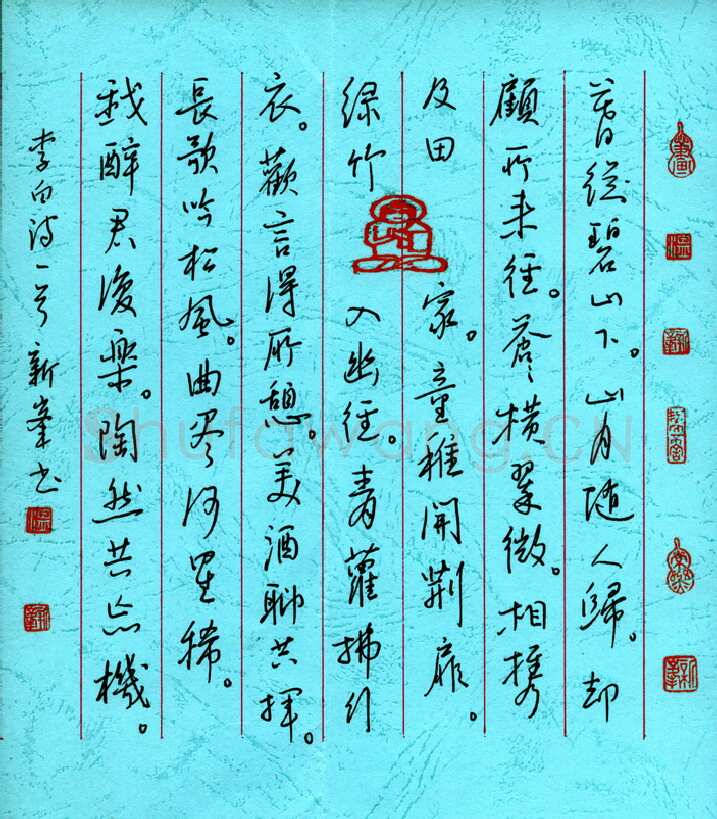 暮從碧山下。山月隨人歸。却
顧所来徑。蒼々橫翠微。相攜
及田家。童稚開荆扉。
绿竹入幽徑。青蘿拂行
衣。歡言得所憩。美酒聊共揮。
長歌吟松風。曲尽河星稀。
我醉君復樂。陶然共忘機。
李白诗一首 新峯书
Shufawang.CN